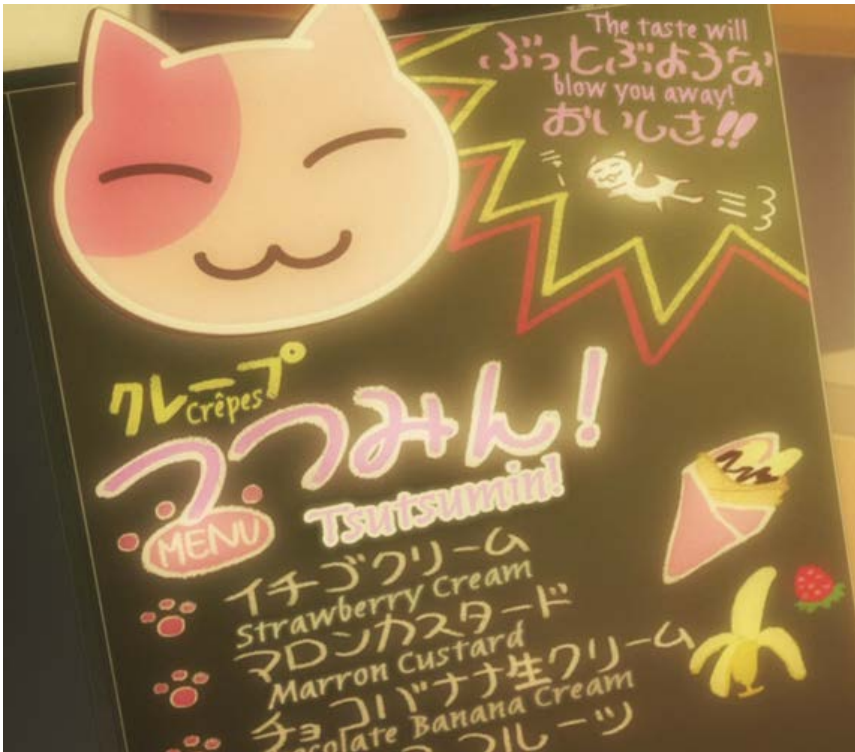 The taste will
ぶっとぶような
blow you away!
おいしさ!!
クレープ
Crêpes
つつみん!
Tsutsumin!
MENU
イチゴクリーム
Strawberry Cream
マロンカスタード
Marron Custard
チョコバナナ生クリーム
Chocolate Banana Cream
フルーツ